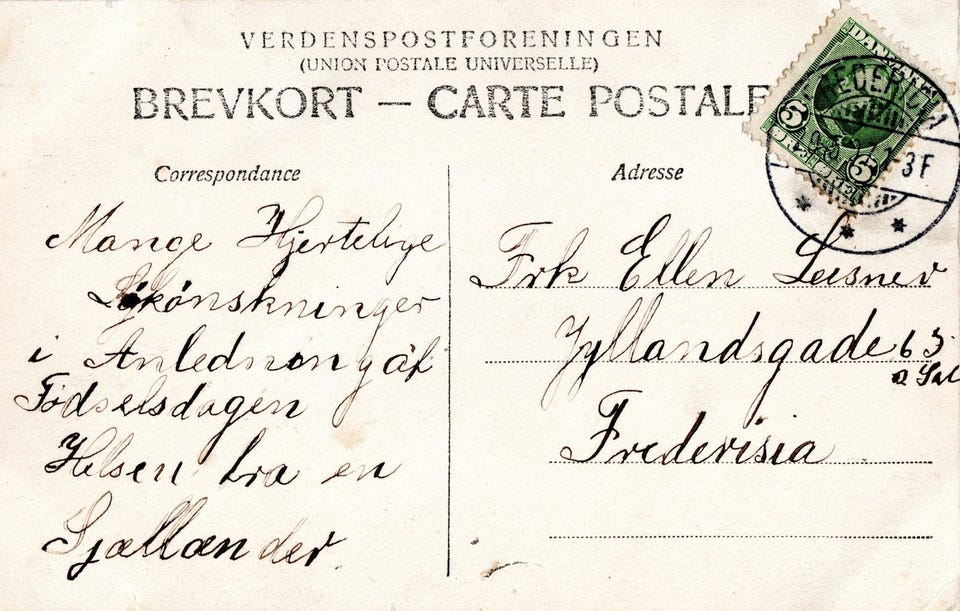 VERDENSPOSTFORENINGEN
(UNION POSTALE UNIVERSELLE)
BREVKORT — CARTE POSTALE
DANMARK
5 5
3F
Correspondance
Adresse
Mange Hjertelige
Lykønskninger
i Anledning af
Fødselsdagen
Helsen fra en
Sjællænder.
Frk Ellen Leisner
Jyllandsgade 63
2 Sal
Fredericia